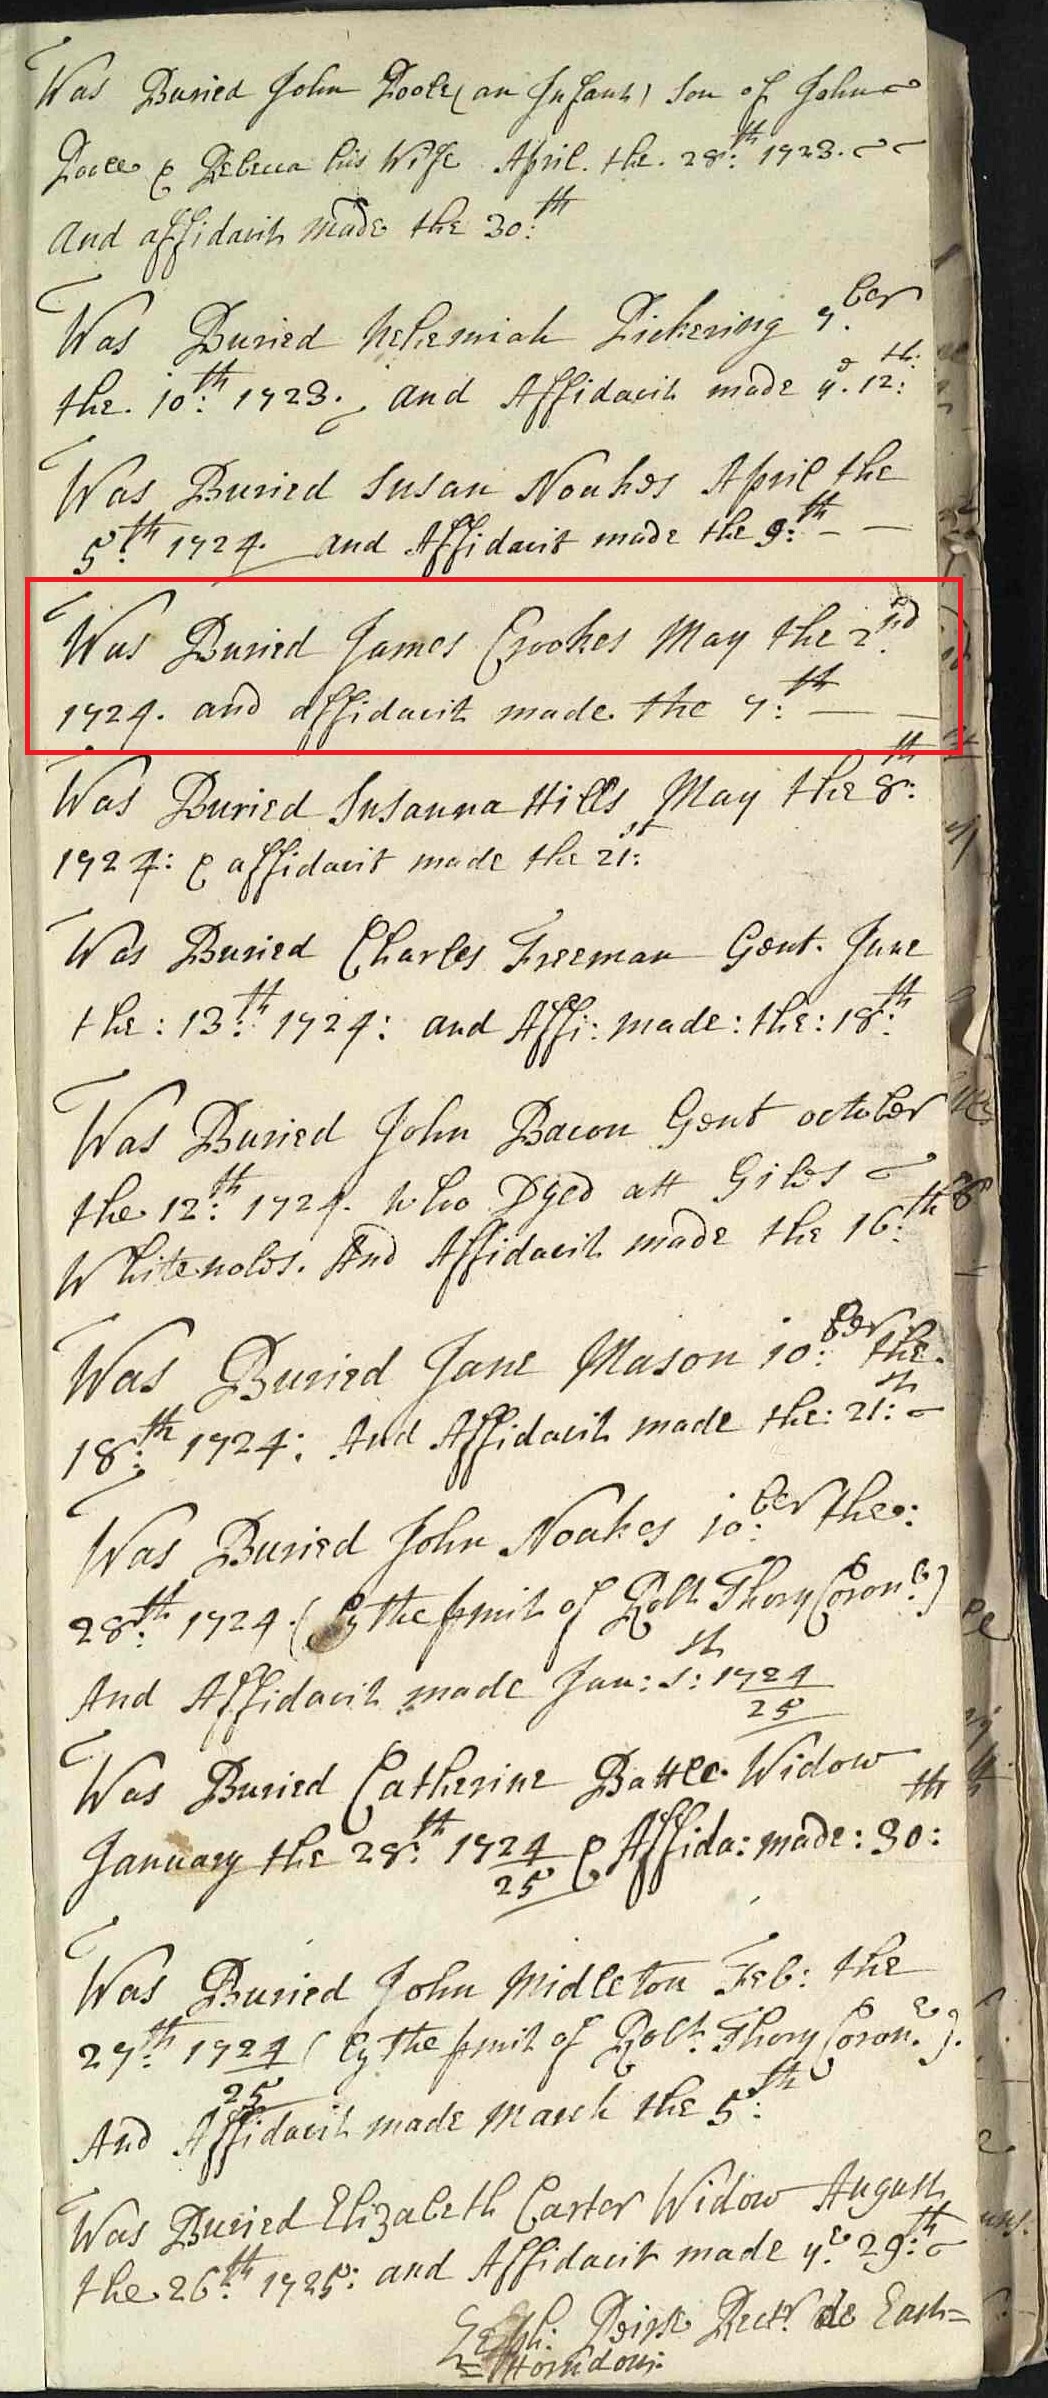 Was Buried John Poole (an Infant) Son of John
Poole & Rebecca his Wife April. the. 28:th 1723.
And affidavit made the 30:th
Was Buried Nehemiah Pickering 7.ber
the. 10:th 1723. And Affidavit made ye. 12:th
Was Buried Susan Noakes April the
5:th 1724. and Affidavit made the 9:th
Was Buried James Crookes May the 2nd
1724. and affidavit made. the 7:th
Was Buried Susanna Hills May the 8:th
1724: & affidavit made the 21:st
Was Buried Charles Freeman Gent. June
the: 13:th 1724: and Affi: made: the: 18:th
Was Buried John Bacon Gent october
the 12:th 1724. who Dyed att Giles
Whitenolds. And Affidavit made the 16:th
Was Buried Jane Mason 10:ber the.
18:th 1724: And Affidavit made the: 21:st
Was Buried John Noakes 10:ber the:
28:th 1724. (by the pmit of Robt Thory Coronr)
And Affidavit made Jan: 1:st 1724/25
Was Buried Catherine Battle Widow
January the 28:th 1724/25 & Affida: made: 30:th
Was Buried John Midleton Feb: the
27:th 1724/25 (by the pmit of Robt. Thory Coronr.).
And Affidavit made March the 5:th
Was Buried Elizabeth Carter Widow August
the 26:th 1725: and Affidavit made ye 29:th
Rectr. de East=
=Horndon: